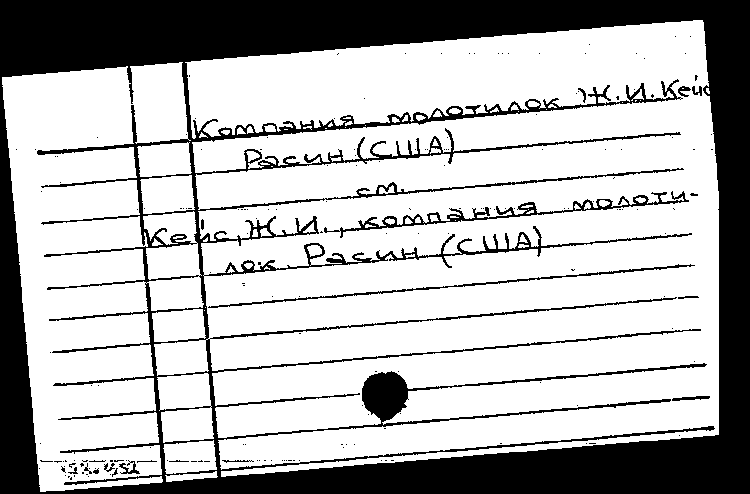 Компания молотилок Ж.И.Кейс
Расин (США)
см.
Кейс, Ж.И., компания молоти-
лок. Расин (США)